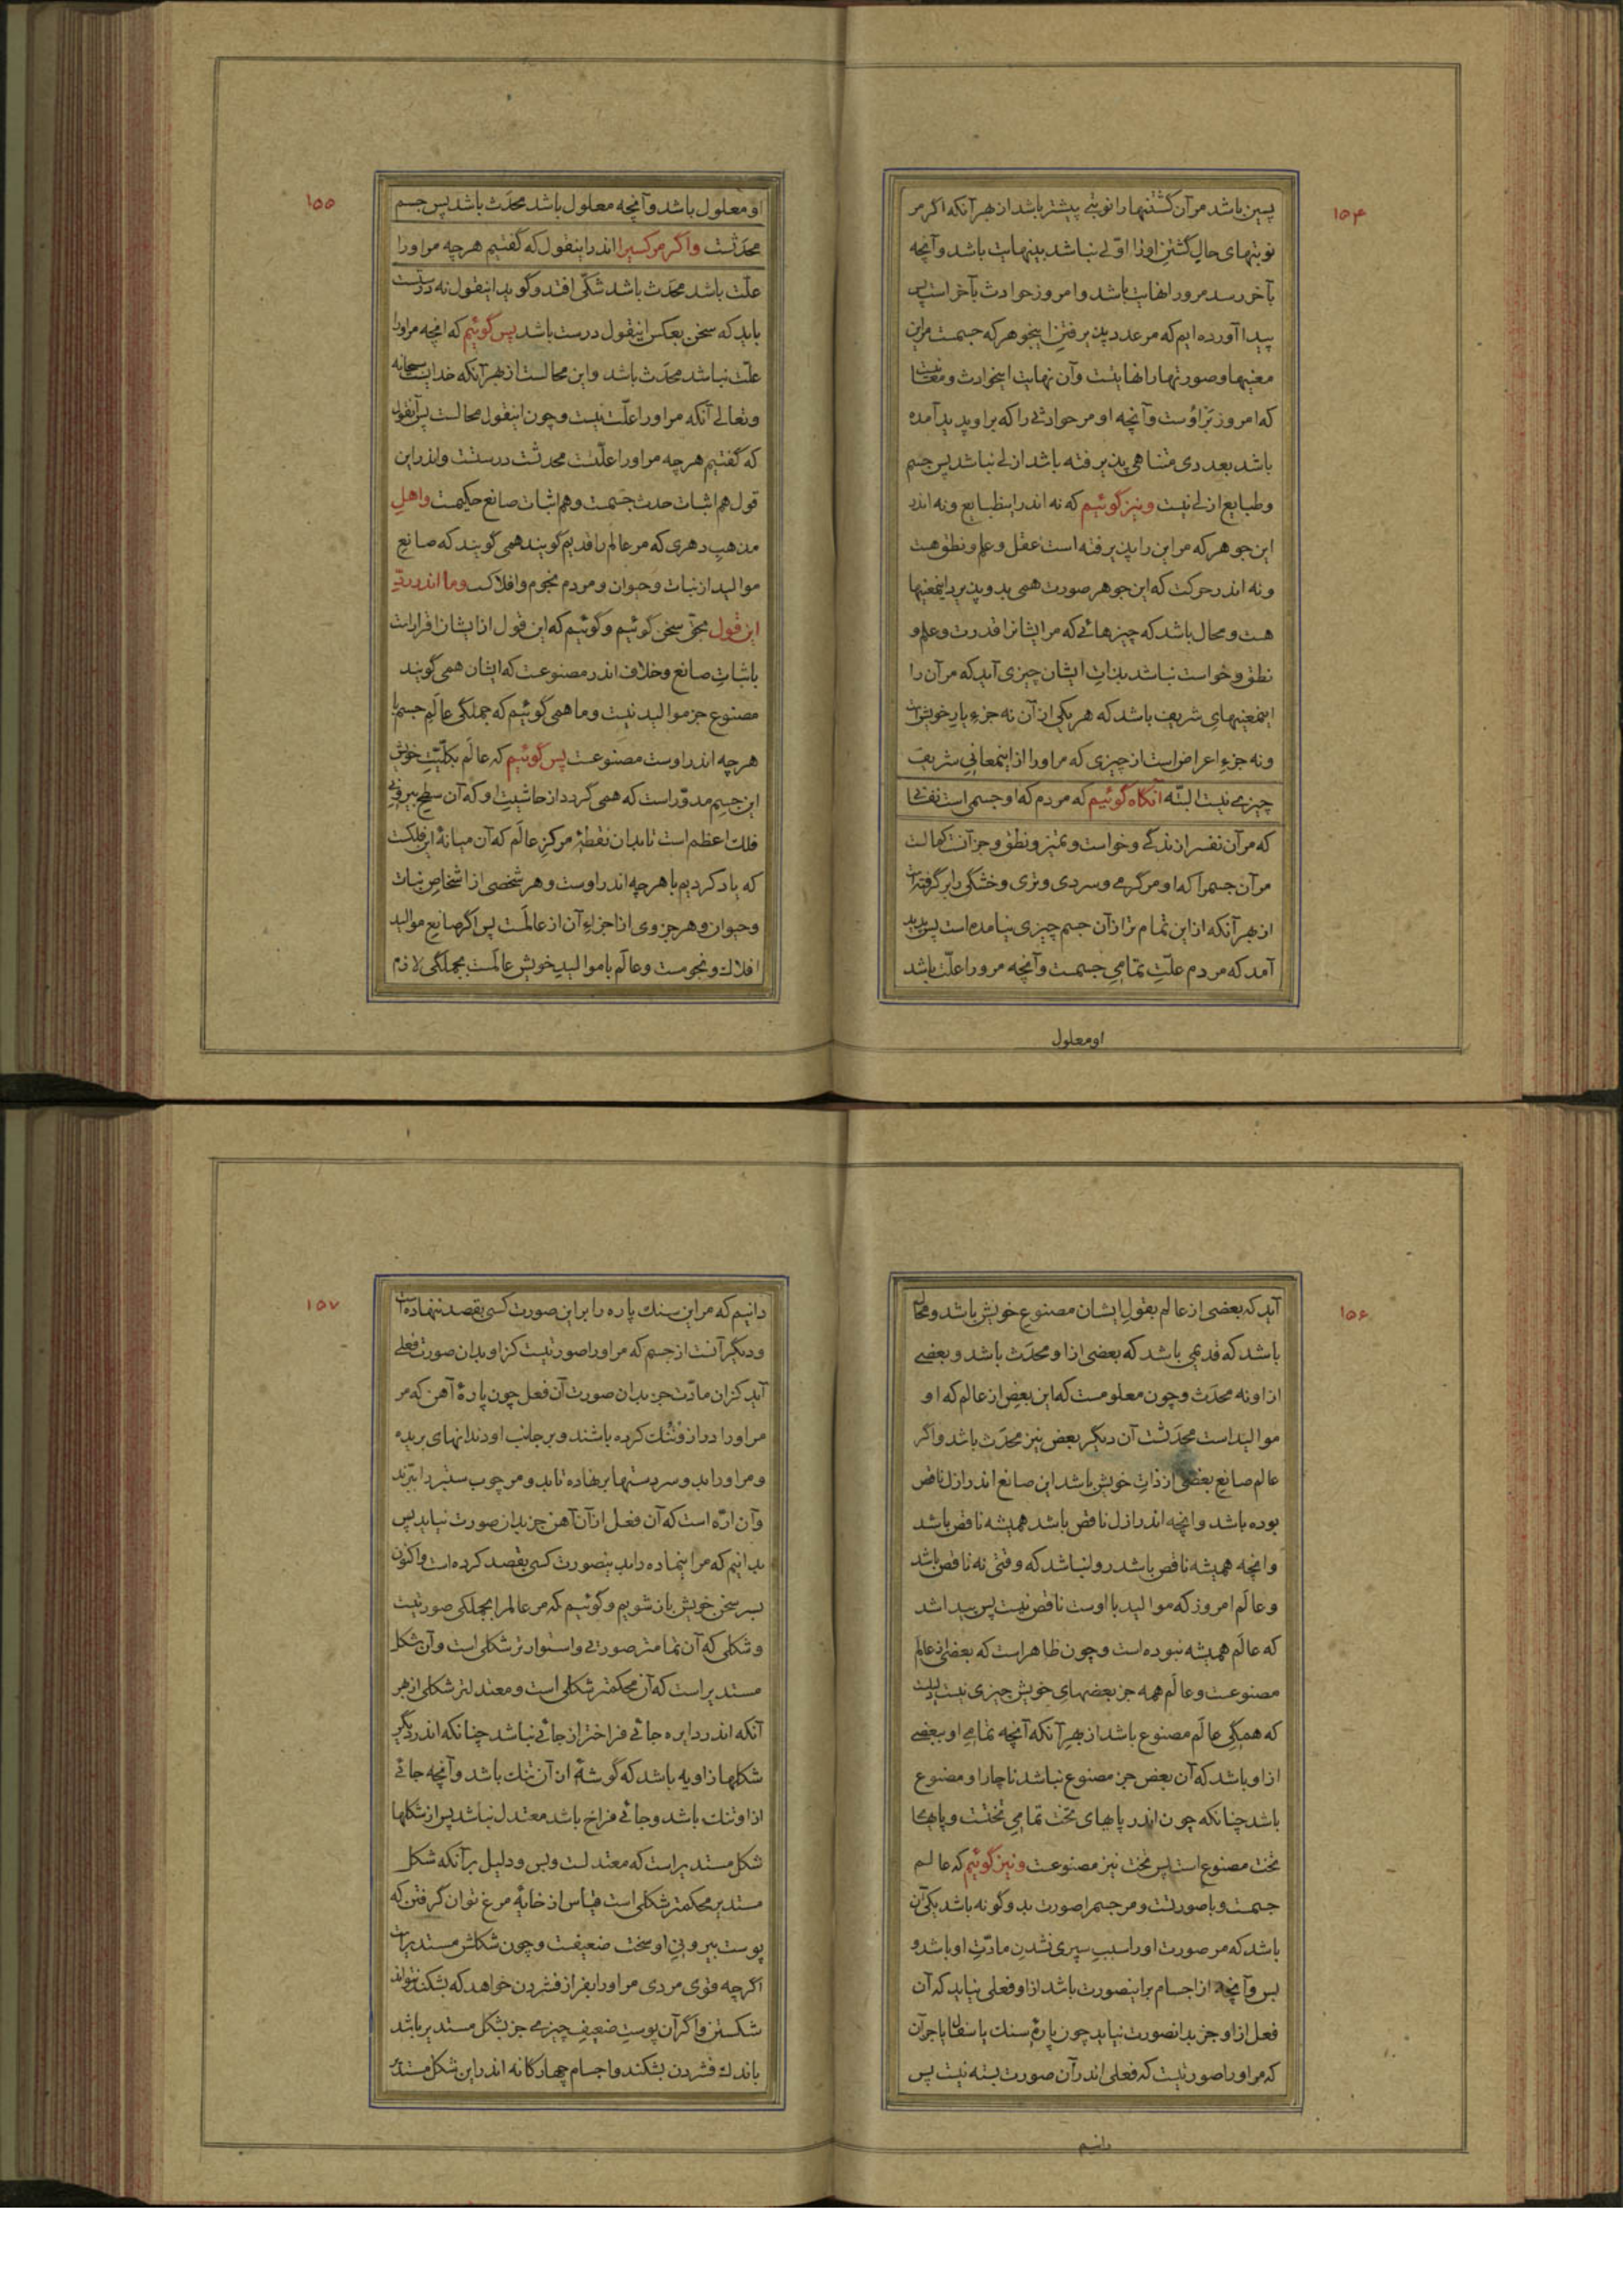 ۱۵۴
پسین باشد مر آن گشتنیها را نوبتی پیشتر باشد از بهر آنکه اگر مر
نوبتهای حال گشتن او را اوّلی نباشد بینهایت باشد وآنچه
بآخر رسد مرورا نهایت باشد و امروز حوادث بآخر است پس
پیدا آورده ایم که مر عدد پذیرفتن اینجوهر که جسمست مر این
معنیها و صورتها را نهایتست وآن نهایت اینحوادث و
که امروز بر اوست وآنچه او مر حوادثی را که بر او پدید آمده
باشد بعددی متناهی پذیرفته باشد ازلی نباشد پس جسم
و طبایع ازلی نیست ونیز گوئیم که نه اندر اینطبایع ونه اندر
این جوهر که مر این را پذیرفته است عقل و علم و نطق هست
ونه اندر حرکت که این جوهر صورت همی بدو پذیرد اینمعنیها
هست و محال باشد که چیزهائی که مر ایشانرا قدرت و علم و
نطق و خواست نباشد بذات ایشان چیزی آید که مر آن را
اینمعنیهای شریف باشد که هر یکی از آن نه جزء یار خویش است
ونه جزء اعراض است از چیزی که مر اورا از اینمعانی شریف
چیزی نیست البتّه آنگاه گوئیم که مردم که او جسمی است
که مر آن نفس را زندگی وخواست و تمیز و نطق و جز آنست کمالست
مر آن جسمرا که او مر گرمی و سردی و تری و خشکی را بر گرفته است
از بهر آنکه از این تمام تر از آن جسم چیزی نیامده است پس پدید
آمد که مردم علّتِ تمامیِ جسمست وآنچه مرورا علّت باشد
او معلول
۱۵۵
او معلول باشد وآنچه معلول باشد محدَث باشد پس جسم
محدَثست واگر مر کسیرا اندر اینقول که گفتیم هرچه مر اورا
علّت باشد محدَث باشد شکّی افتد وگوید اینقول نه درستست
باید که سخن بعکس اینقول درست باشد پس گوئیم که انچه مر اورا
علّت نباشد محدَث باشد واین محالست از بهر آنکه خدایست سبحانه
وتعالی آنکه مر اورا علّت نیست وچون اینقول محالست پس آنقول
که گفتیم هرچه مر اورا علّتست محدثست درستست واندر این
قول هم اثبات حدث جسمست وهم اثبات صانع حکیمست واهلِ
مذهبِ دهری که مر عالم را قدیم گویند همی گویند که صانع
موالید از نبات وحیوان ومردم نجوم وافلاکست وما اندر ردِّ
این قول بحق سخن گوئیم وگوئیم که این قول از ایشان اقرار است
باثباتِ صانع وخلاف اندر مصنوعست که ایشان همی گویند
مصنوع جز موالید نیست وما همی گوئیم که جملگی عالَمِ جسم با
هرچه اندر اوست مصنوعست پس گوئیم که عالَم بکلّیّتِ خویش
این جسمِ مدوّر است که همی گردد از حاشیت او که آن سطحِ بیرونیِ
فلک اعظم است تا بدان نقطهٔ مرکز عالَم که آن میانهٔ این فلکست
که یاد کردیم با هرچه اندر اوست وهر شخصی از اشخاصِ نبات
وحیوان وهر جزوی از اجزاءِ آن از عالَمست پس اگر صانع موالید
افلاک ونجومست وعالَم با موالیدِ خویش عالَمست بجملگی لازم
۱۵۶
آید که بعضی از عالم بقولِ ایشان مصنوعِ خویش باشد ومحال
باشد که قدیمی باشد که بعضی از او محدَث باشد وبعضی
از او نه محدَث وچون معلومست که این بعض از عالم که او
موالید است محدَثست آن دیگر بعض نیز محدَث باشد واگر
عالم صانعِ بعضی از ذاتِ خویش باشد این صانع اندر ازل ناقص
بوده باشد وانچه اندر ازل ناقص باشد همیشه ناقص باشد
وانچه همیشه ناقص باشد روا نباشد که وقتی نه ناقص باشد
وعالَم امروز که موالید با اوست ناقص نیست پس پیدا شد
که عالَم همیشه نبوده است وچون ظاهر است که بعضی از عالَم
مصنوعست وعالَم همه جز بعضهایِ خویش چیزی نیست
که همگیِ عالَم مصنوع باشد از بهر آنکه آنچه تمامیِ او ببعضی
از او باشد که آن بعض جز مصنوع نباشد ناچار او مصنوع
باشد چنانکه چون اندر پایهای تخت تمامیِ تختست وپایهای
تخت مصنوع است پس تخت نیز مصنوعست ونیز گوئیم که عالم
جسمست وبا صورتست ومر جسمرا صورت بدو گونه باشد یکی آن
باشد که مر صورت اورا سبب سپری شدنِ مادّتِ او باشد و
بس وآنچه از اجسام بر اینصورت باشد از او فعلی نیاید که آن
فعل از او جز بدانصورت نیاید چون پارهٔ سنک یا سفال یا جز آن
که مر اورا صورتیست که فعلی اندر آن صورت بسته نیست پس
دانیم
۱۵۷
دانیم که مر این سنک پاره را بر این صورت کسی بقصد ننهاده است
ودیگر آنست از جسم که مر اورا صورتیست کز او بدان صورت فعلی
آید کزان مادّت جز بدان صورت آن فعل چون پارهٔ آهن که مر
مر اورا دراز وتُنُک کرده باشند وبر جانب او دندانهای بریده
ومر اورا بدو سر دستها بر نهاده تا بدو مر چوب ستبر را ببرند
وآن ارّه است که آن فعل از آن آهن جز بدان صورت نیاید پس
بدانیم که مر اینماده را بدینصورت کسی بقصد کرده است واکنون
بسرِ سخن خویش باز شویم وگوئیم که مر عالمرا بجملگی صورتیست
وشکلی که آن تمامتر صورتی واستوارتر شکلی است وآن شکل
مستدیر است که آن محکمتر شکلی است ومعتدلتر شکلی از بهر
آنکه اندر دایره جائی فراختر از جائی نباشد چنانکه اندر دیگر
شکلها زاویه باشد که گوشهٔ از آن تنک باشد وآنچه جائی
از او تنک باشد وجائی فراخ باشد معتدل نباشد پس از شکلها
شکل مستدیر است که معتدلست وبس ودلیل بر آنکه شکل
مستدیر محکمتر شکلی است قیاس از خایهٔ مرغ توان گرفتن که
پوستِ بیرونیِ او سخت ضعیفست وچون شکلش مستدیر است
اگرچه قوی مردی مر اورا بفراز فشردن خواهد که بشکند نتواند
شکستن واگر آن پوستِ ضعیفِ چیزی جز بشکل مستدیر باشد
باندک فشردن بشکند واجسام چهارگانه اندر این شکل مستدیر